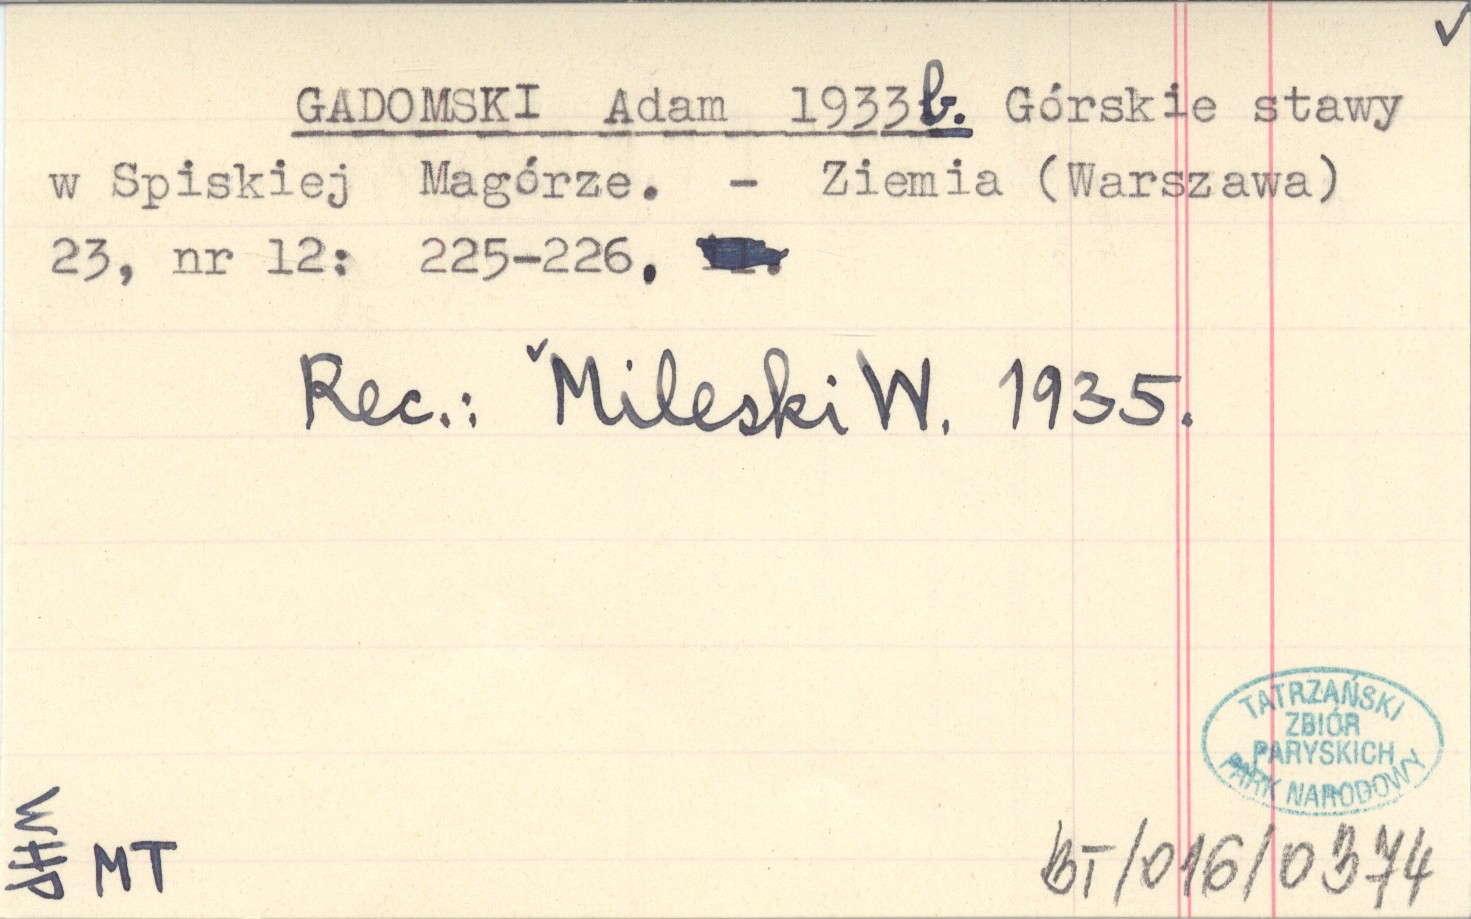 ✓
GADOMSKI Adam 1933b. Górskie stawy
w Spiskiej Magórze. - Ziemia (Warszawa)
23, nr 12: 225-226.
Rec.: ✓Mileski W. 1935.
TATRZAŃSKI
ZBIÓR
PARYSKICH
PARK NARODOWY
MT
BT/016/0374